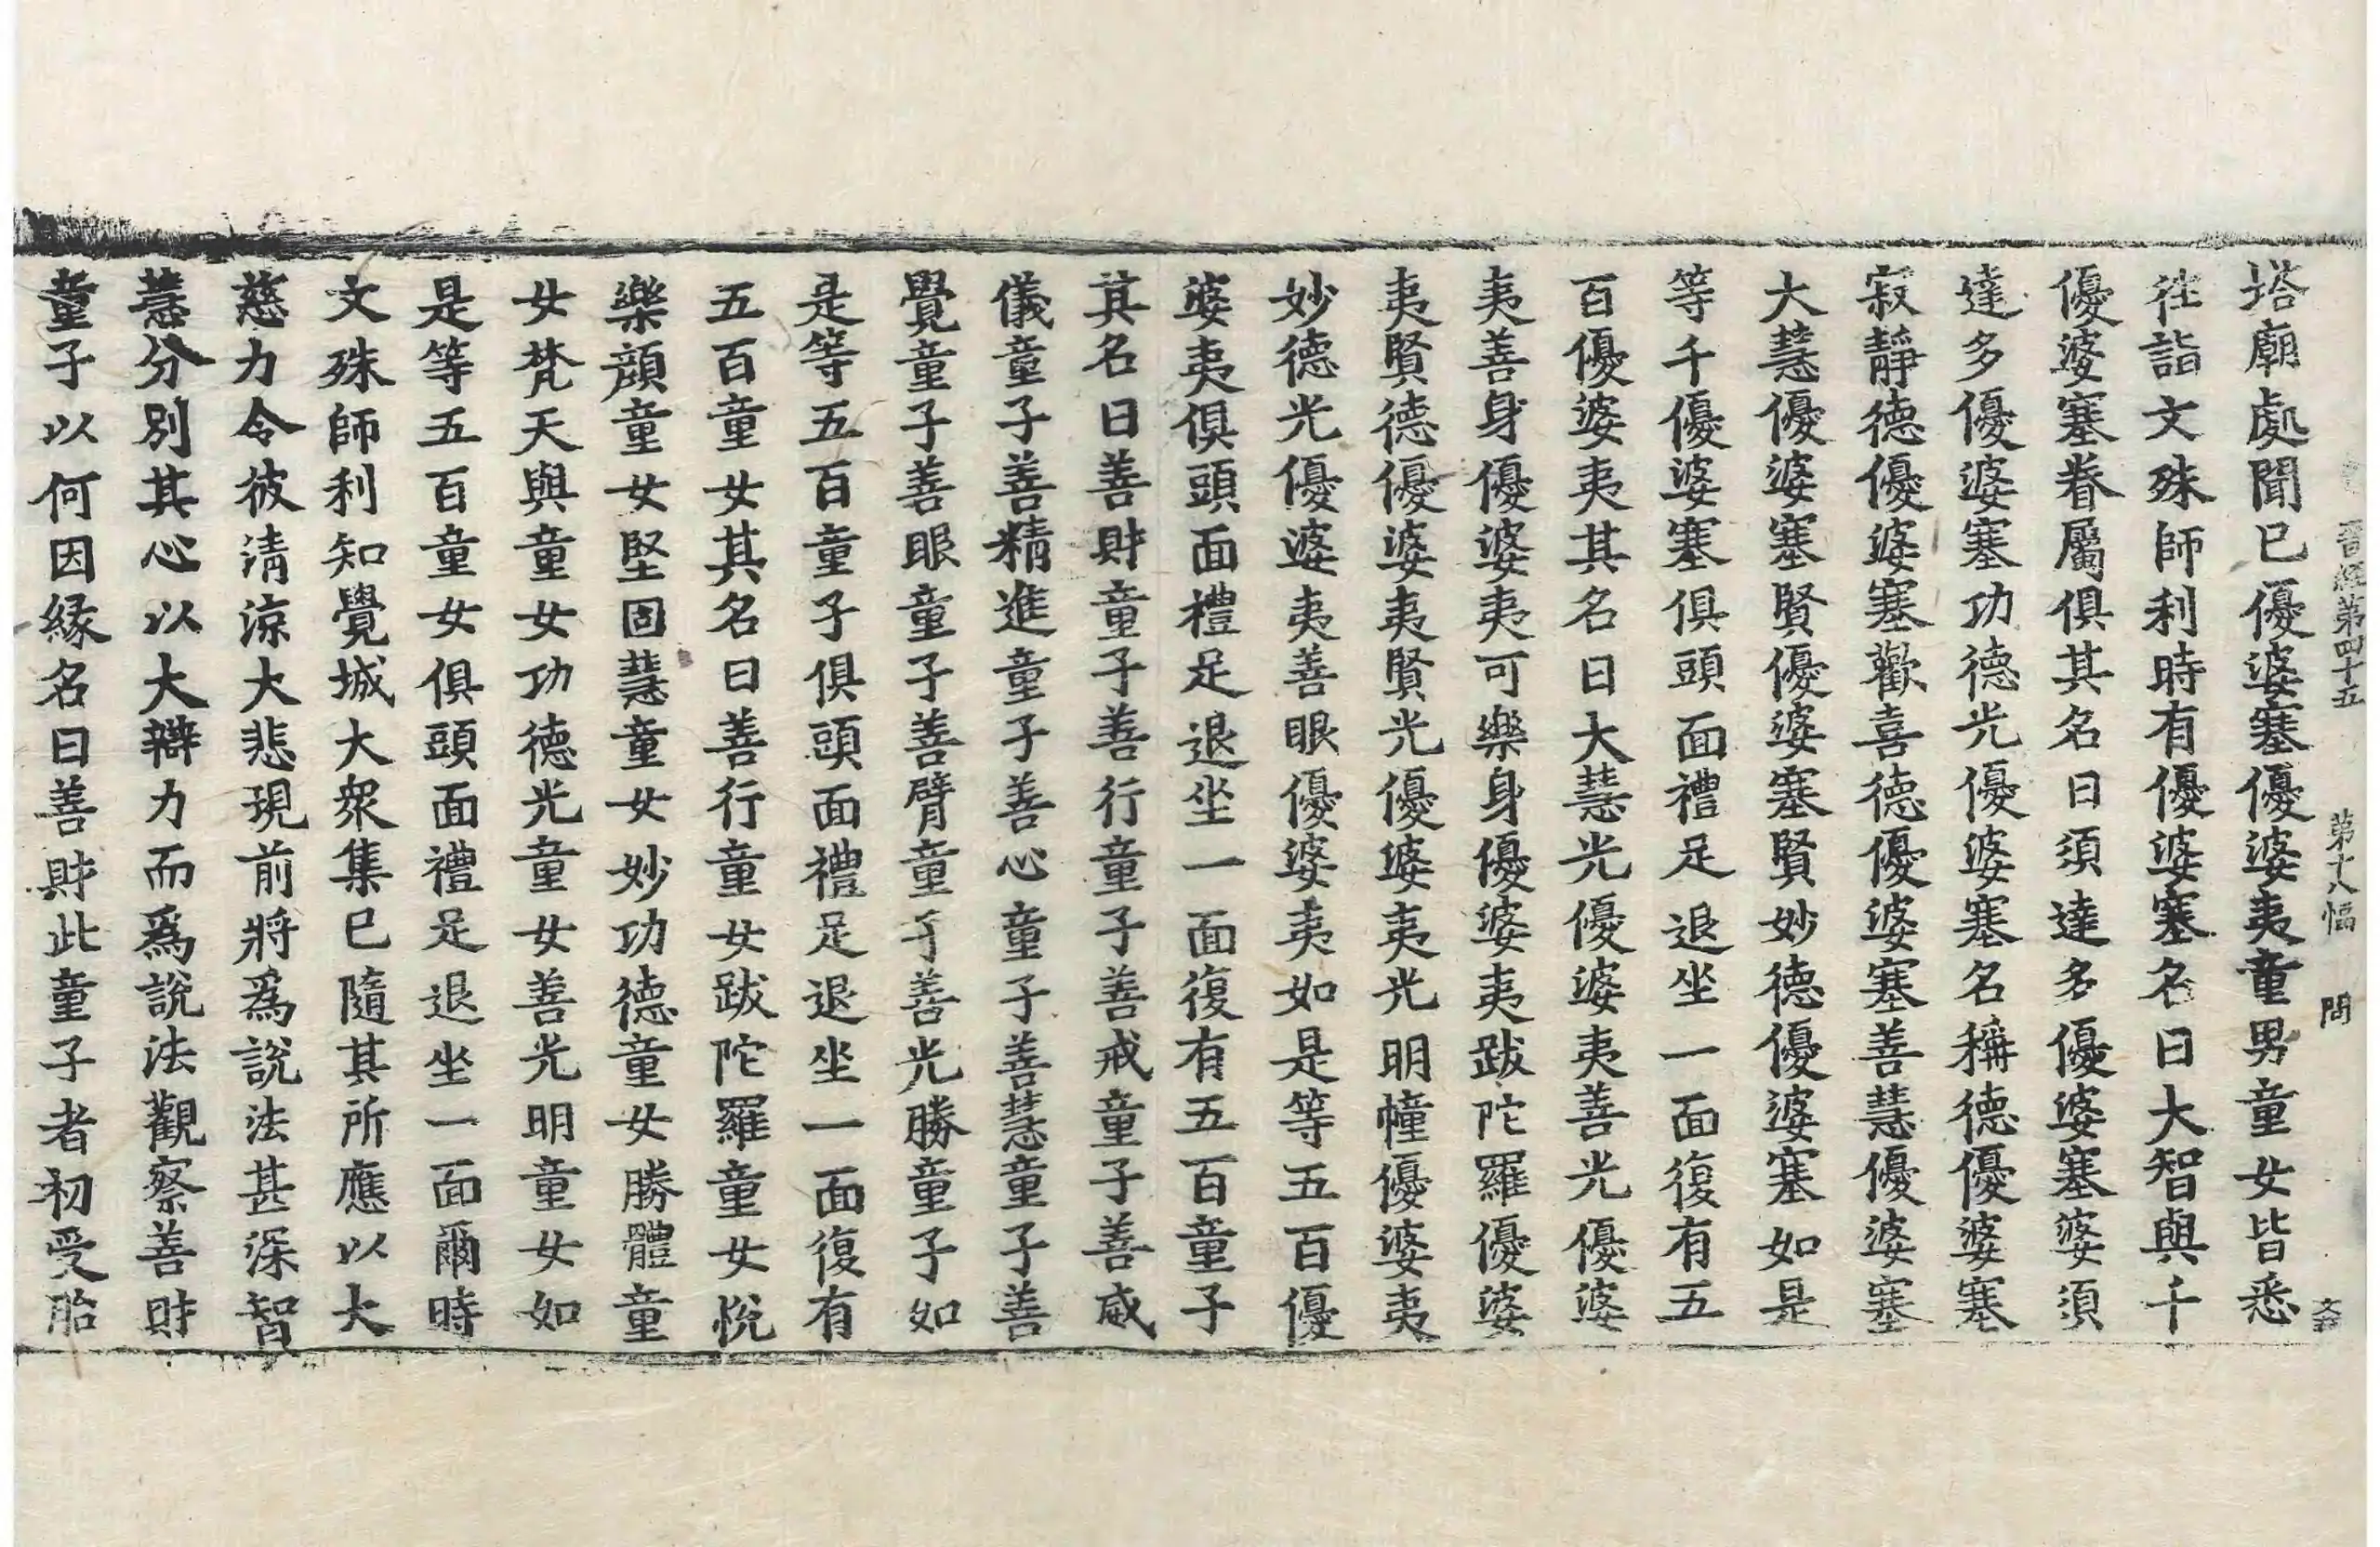 晋經第四十五 第十八幅 問 文
塔廟處聞已優婆塞優婆夷童男童女皆悉
往詣文殊師利時有優婆塞名曰大智與千
優婆塞眷屬俱其名曰須達多優婆塞婆須
達多優婆塞功德光優婆塞名稱德優婆塞
寂靜德優婆塞歡喜德優婆塞善慧優婆塞
大慧優婆塞賢優婆塞賢妙德優婆塞如是
等千優婆塞俱頭面禮足退坐一面復有五
百優婆夷其名曰大慧光優婆夷善光優婆
夷善身優婆夷可樂身優婆夷跋陀羅優婆
夷賢德優婆夷賢光優婆夷光明幢優婆夷
妙德光優婆夷善眼優婆夷如是等五百優
婆夷俱頭面禮足退坐一面復有五百童子
其名曰善財童子善行童子善戒童子善威
儀童子善精進童子善心童子善慧童子善
覺童子善眼童子善臂童子善光勝童子如
是等五百童子俱頭面禮足退坐一面復有
五百童女其名曰善行童女跋陀羅童女悅
樂顏童女堅固慧童女妙功德童女勝體童
女梵天與童女功德光童女善光明童女如
是等五百童女俱頭面禮足退坐一面爾時
文殊師利知覺城大衆集已隨其所應以大
慈力令彼清涼大悲現前將爲說法甚深智
慧分別其心以大辯力而爲說法觀察善財
童子以何因緣名曰善財此童子者初受胎